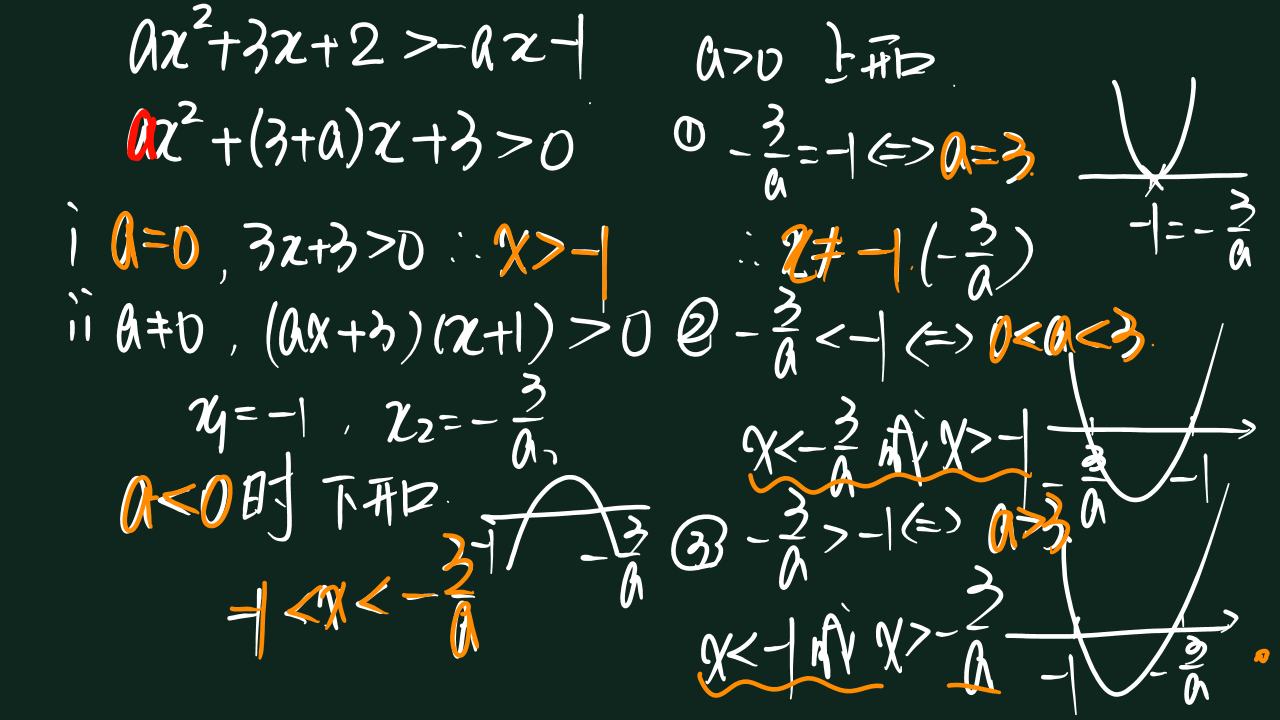 ax²+3x+2>-ax-1
ax²+(3+a)x+3>0
i a=0, 3x+3>0 ∴ x>-1
ii a≠0, (ax+3)(x+1)>0
x₁=-1, x₂=-3/a
a<0时 下开口
-1 -3/a
-1<x<-3/a
a>0 上开口
① -3/a=-1 <=> a=3
-1=-3/a
∴ x≠-1.(-3/a)
② -3/a<-1 <=> 0<a<3
x<-3/a 或 x>-1
-3/a -1
③ -3/a>-1 <=> a>3
x<-1 或 x>-3/a
-1 -3/a